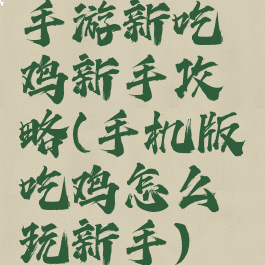 手游新吃
鸡新手攻
略(手机版
吃鸡怎么
玩新手)